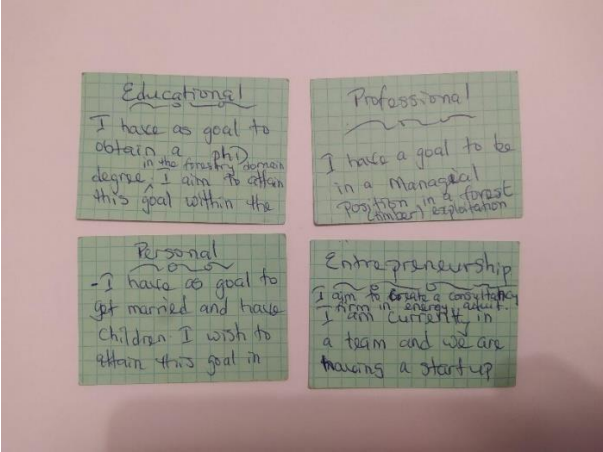 Educational
I have as goal to
obtain a phD
in the forestry domain
degree. I aim to attain
this goal within the
Professional
I have a goal to be
in a Managerial
Position in a forest
(timber) exploitation
Personal
- I have as goal to
get married and have
children. I wish to
attain this goal in
Entrepreneurship
I aim to create a consultancy
firm in energy audit.
I am currently in
a team and we are
having a startup